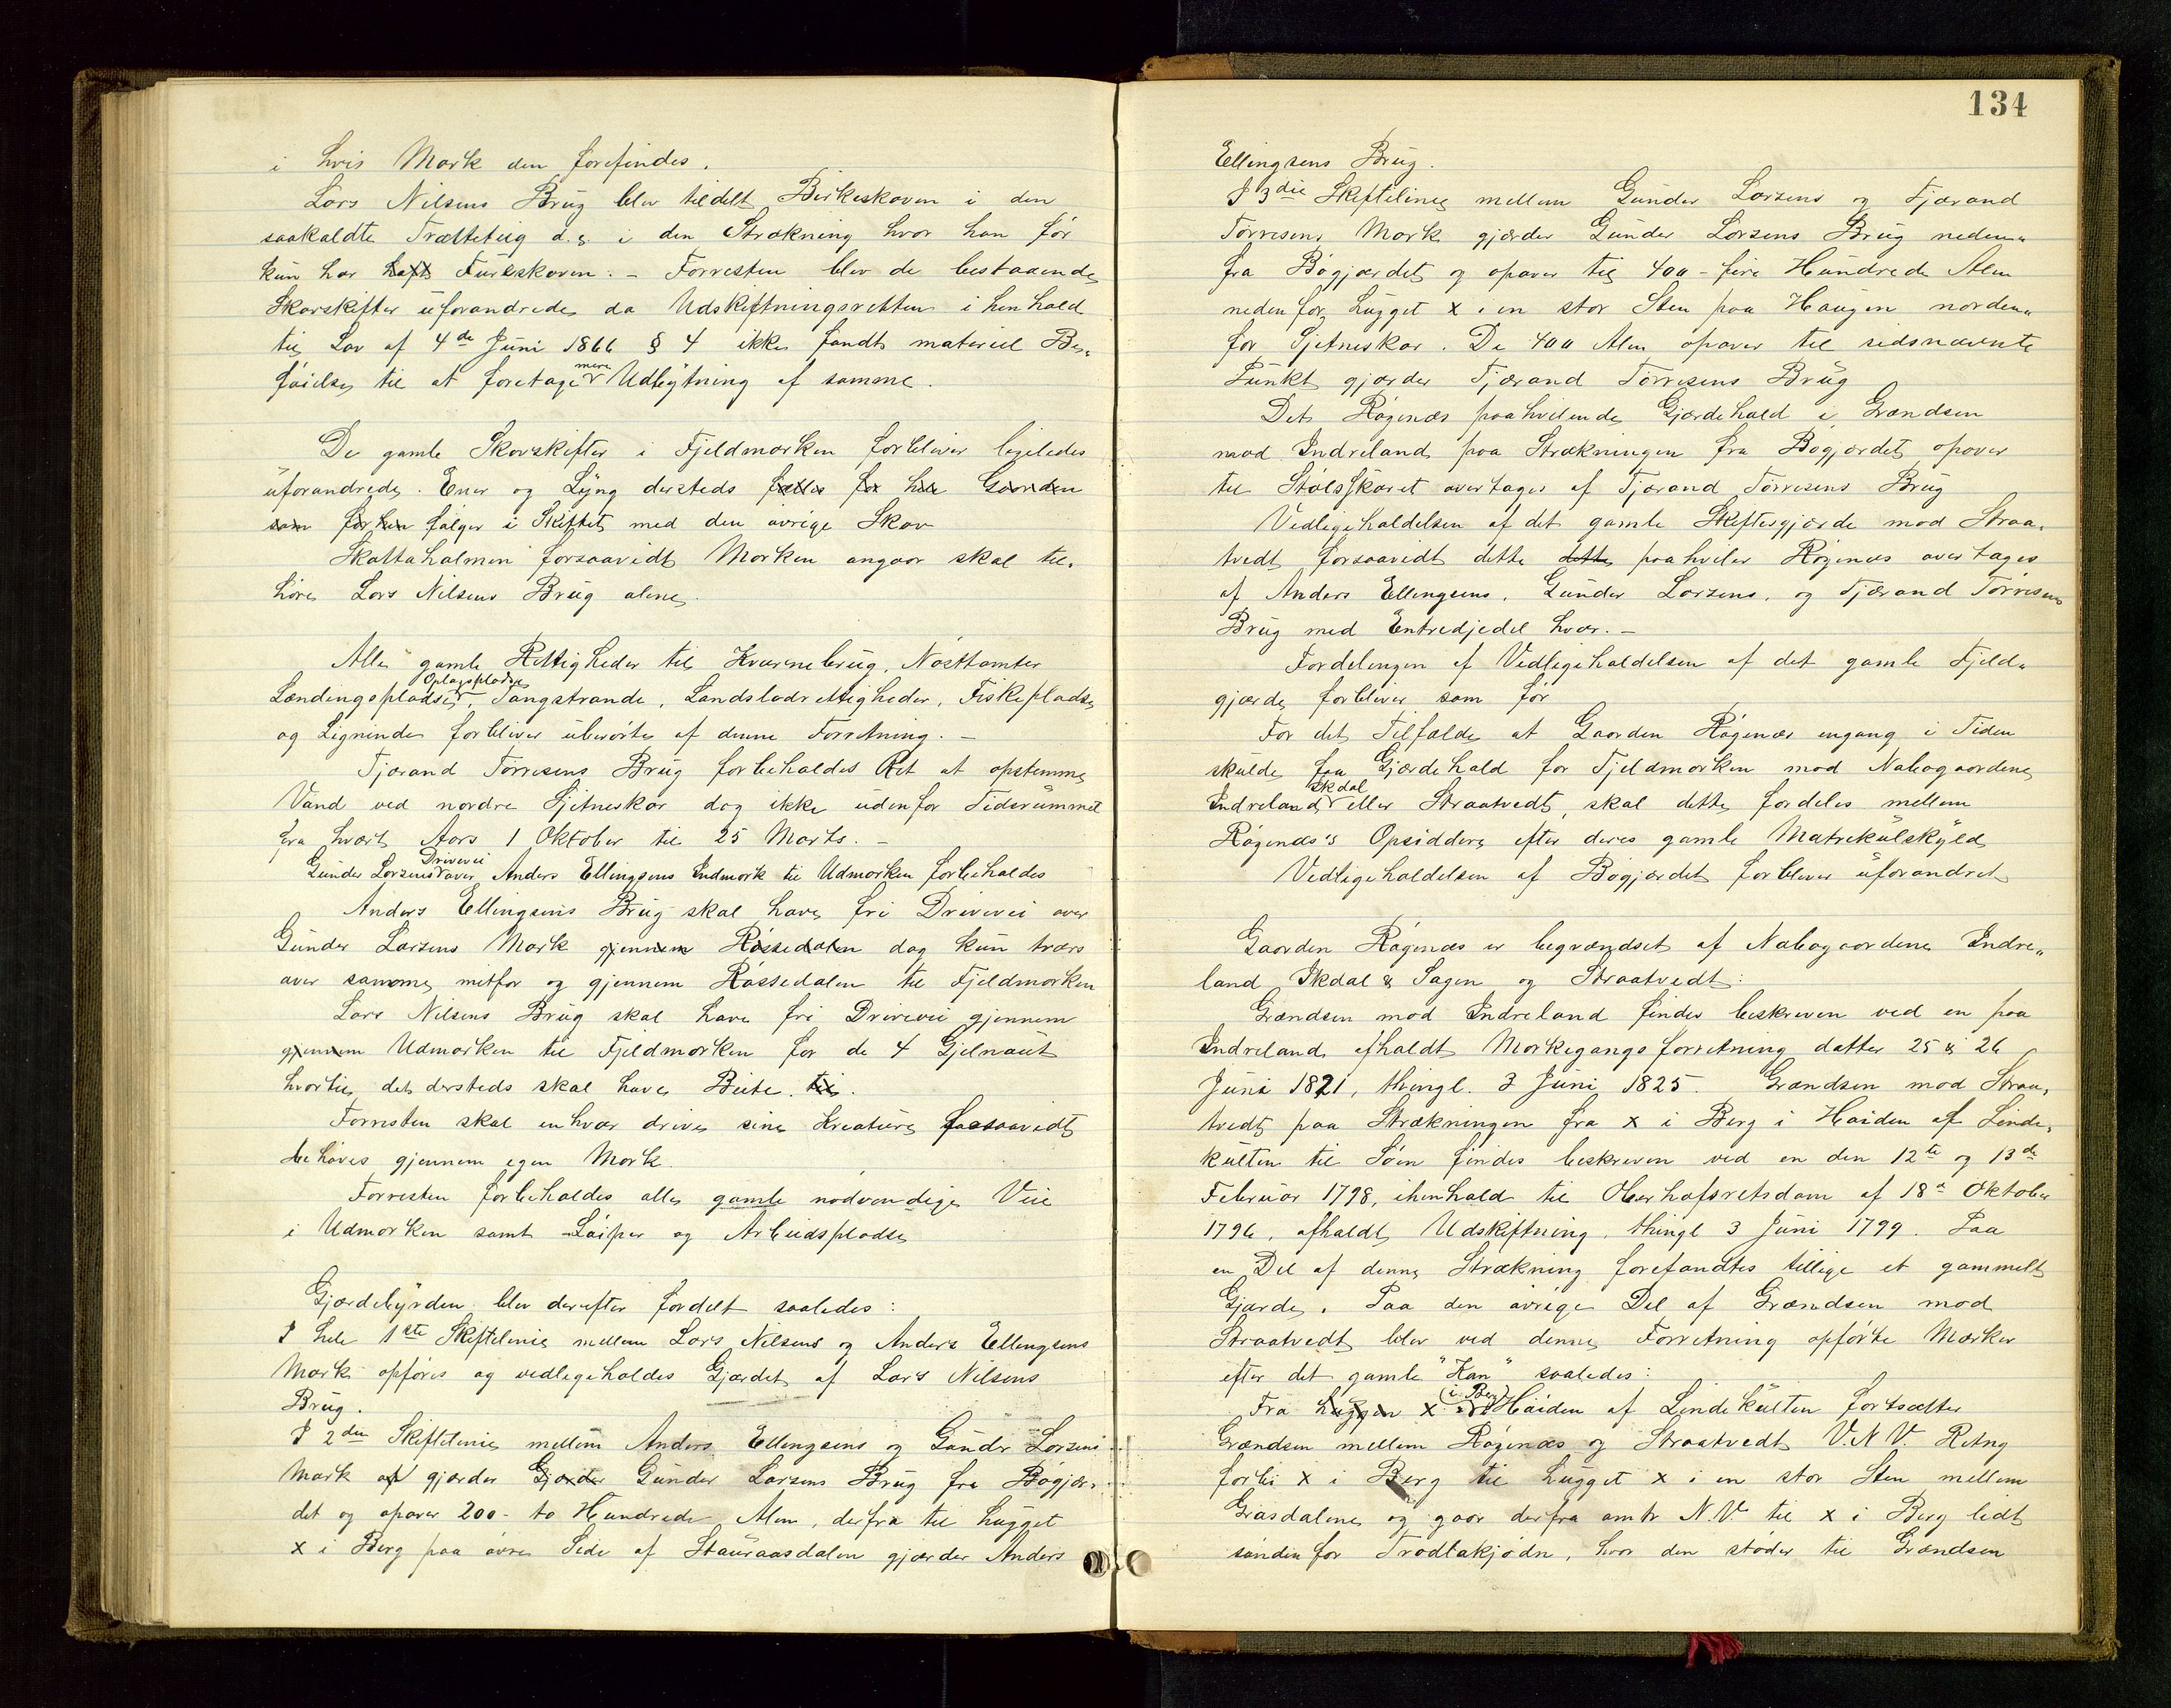 i hvis Mark den forefindes.
Lars Nilsens Brug blev tildelt Birkeskoven i den
saakaldte Trætteteig d.s. i den Strækning hvor han før
kun har havt Fureskoven. – Forresten blev de bestaaende
Skovskifter uforandrede da Udskiftningsretten i henhold
til Lov af 4de Juni 1866 § 4 ikke fandt materiel Be„
føielse til at foretage mere Udbytning af samme.
De gamle Skovskifter i Fjeldmarken forbliver ligeledes
uforandrede. Ener og Lyng dersteds fælles for hele Gaarden
som før hen følger i Skiftet med den øvrige Skov
Skattaholmen forsaavidt Marken angaar skal til„
høre Lars Nilsens Brug alene.
Alle gamle Rettigheder til Kværnebrug, Nøsttomter
Oplagspladse
Landingspladser, Tangstrande, Landslodrettigheder, Fiskepladse
og Lignende forbliver uberørte af denne Forretning. –
Tjærand Tørresens Brug forbeholdes Ret at opstemme
Vand ved nordre Gjetneskar dog ikke udenfor Tidsrummet
fra hvert Aars 1 Oktober til 25 Marts. –
Drivevei
Gunder Larsens over Anders Ellingsens Indmark til Udmarken forbeholdes
Anders Ellingsens Brug skal have fri Drivevei over
Gunder Larsens Mark gjennem Røssedalen dog kun tværs
over samme mitfor og gjennem Røssedalen til Fjeldmarken
Lars Nilsens Brug skal have fri Drivevei gjennem
gjennem Udmarken til Fjeldmarken for de 4 Gjelnaut
hvortil det dersteds skal have Beite. til.
Forresten skal enhver drive sine Kreature forsaavidt
behøves gjennem egen Mark.
Forresten forbeholdes alle gamle nødvendige Veie
i Udmarken samt Løiper og Arbeidspladse
Gjærdebyrden blev derefter fordelt saaledes:
I hele 1ste Skiftelinie mellem Lars Nilsens og Anders Ellingsens
Mark opføres og vedligeholdes Gjærdet af Lars Nilsens
Brug.
I 2den Skiftelinie mellem Anders Ellingsens og Gunder Larsens
Mark af gjærder Gjærder Gunder Larsens Brug fra Bøgjær„
det og opover 200 - to Hundrede Alen, derfra til hugget
x i Berg paa øvre Side af Stauraasdalen gjærder Anders
134
Ellingsens Brug.
I 3die Skiftelinie mellem Gunder Larsens og Tjærand
Tørresens Mark gjærder Gunder Larsens Brug neden„
fra Bøgjærdet og opover til 400 - fire Hundrede Alen
nedenfor hugget x i en stor Sten paa Haugen norden„
for Gjetneskar. De 400 Alen opover til sidsnævnte
Punkt gjærder Tjærand Tørresens Brug
Det Røgenæs paahvilende Gjærdehold i Grændsen
mod Indreland paa Strækningen fra Bøgjærdet opover
til Stølsskaret overtages af Tjærand Tørresens Brug
Vedligeholdelsen af det gamle Skiftesgjærde mod Straa„
tvedt forsaavidt dette dette paahviler Røgenæs overtages
af Anders Ellingsens, Gunder Larsens, og Tjærand Tørresens
Brug med Entredjedel hver. –
Fordelingen af Vedligeholdelsen af det gamle Fjeld„
gjærde forbliver som før
For det Tilfælde at Gaarden Røgenæs engang i Tiden
skulde faa Gjærdehold for Fjeldmarken mod Nabogaardene
Skdal
Indreland eller Straatvedt, skal dette fordeles mellem
Røgenæs's Opsiddere efter deres gamle Matrikulskyld
Vedligeholdelsen af Bøgjærdet forbliver uforandret
Gaarden Røgenæs er begrændset af Nabogaardene Indre„
land Skdal & Sagen og Straatvedt:
Grændsen mod Indreland findes beskreven ved en paa
Indreland afholdt Markegangsforretning datter 25 & 26
Juni 1821, thingl. 3 Juni 1825. Grændsen mod Straa„
tvedt paa Strækningen fra x i Berg i Høiden af Linde„
kulten til Søen findes beskreven ved en den 12te og 13de
Februar 1798, ihenhold til Overhofsretsdom af 18de Oktober
1796, afholdt Udskiftning, thingl 3 Juni 1799. Paa
en Del af denne Strækning forefandtes tillige et gammelt
Gjærde. Paa den øvrige Del af Grændsen mod
Straatvedt blev ved denne Forretning opførte Mærker
efter det gamle "Han" saaledes:
(i Berg)
Fra huggen x i Høiden af Lindekulten fortsætter
Grændsen mellem Røgenæs og Straatvedt V.N.V. Retng
forbi x i Berg til hugget x i en stor Sten mellem
Grasdalene og gaar derfra omtr N.V til x i Berg lidt
sønden for Trodlakjødn, hvor den støder til Grændsen